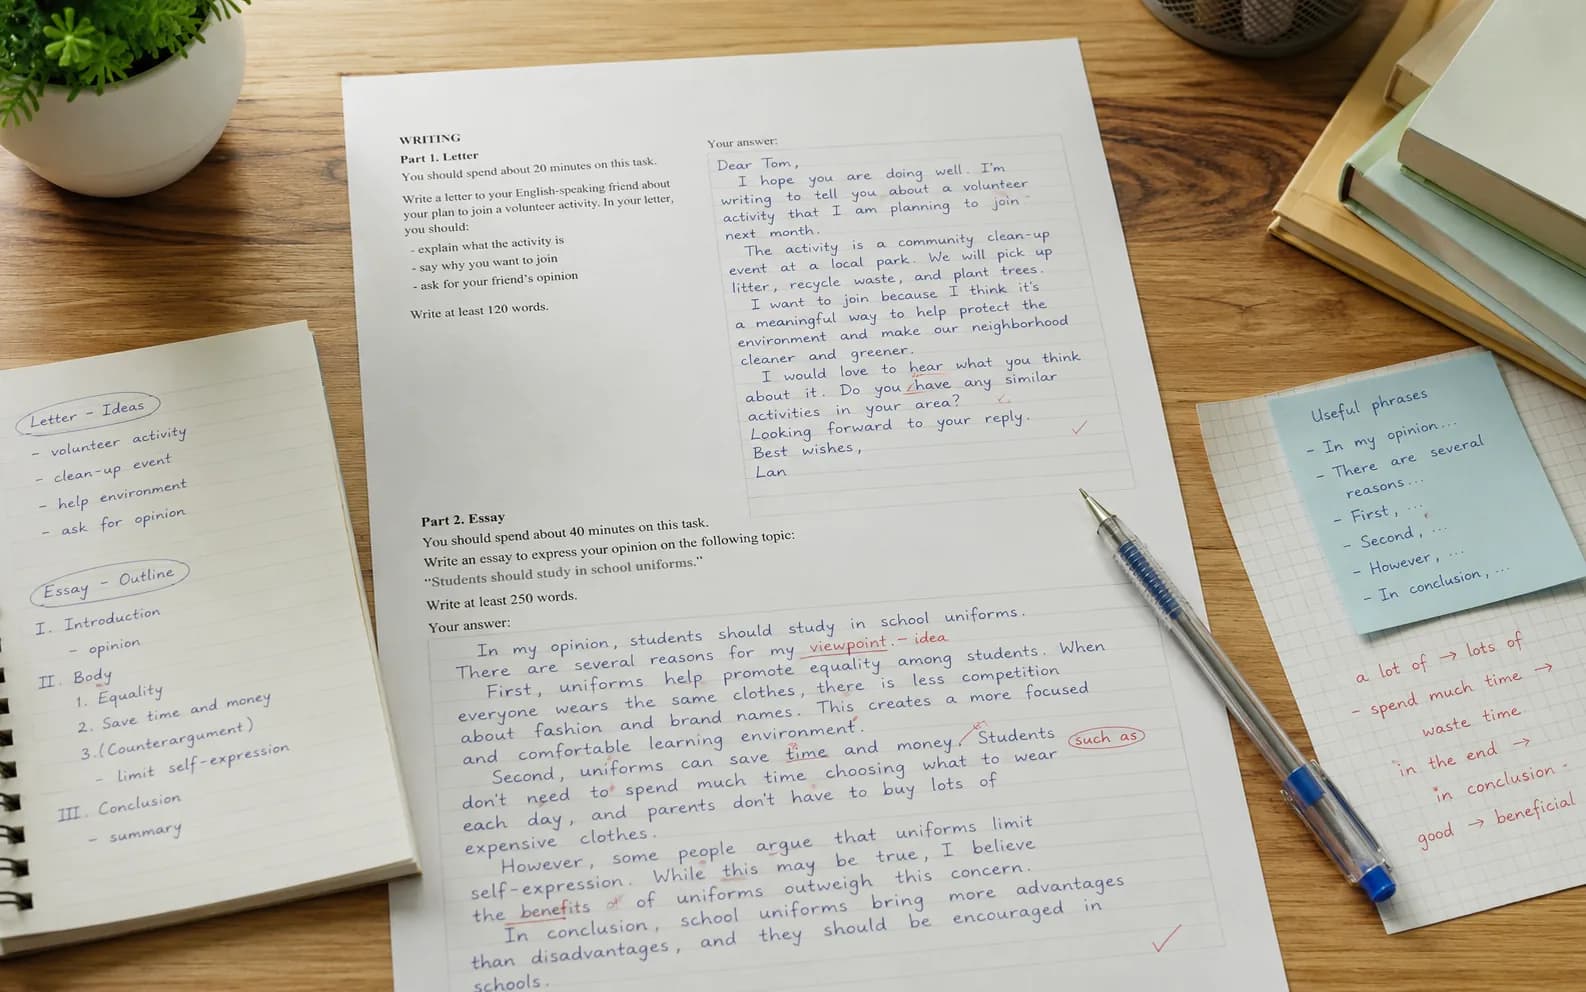 WRITING
Part 1. Letter
You should spend about 20 minutes on this task.
Write a letter to your English-speaking friend about
your plan to join a volunteer activity. In your letter,
you should:
- explain what the activity is
- say why you want to join
- ask for your friend's opinion
Write at least 120 words.
Your answer:
Dear Tom,
I hope you are doing well. I'm
writing to tell you about a volunteer
activity that I am planning to join
next month.
The activity is a community clean-up
event at a local park. We will pick up
litter, recycle waste, and plant trees.
I want to join because I think it's
a meaningful way to help protect the
environment and make our neighborhood
cleaner and greener.
I would love to hear what you think
about it. Do you have any similar
activities in your area?
Looking forward to your reply.
Best wishes,
Lan
Part 2. Essay
You should spend about 40 minutes on this task.
Write an essay to express your opinion on the following topic:
"Students should study in school uniforms."
Write at least 250 words.
Your answer:
In my opinion, students should study in school uniforms.
There are several reasons for my viewpoint. - idea
First, uniforms help promote equality among students. When
everyone wears the same clothes, there is less competition
about fashion and brand names. This creates a more focused
and comfortable learning environment.
Second, uniforms can save time and money. Students such as
don't need to spend much time choosing what to wear
each day, and parents don't have to buy lots of
expensive clothes.
However, some people argue that uniforms limit
self-expression. While this may be true, I believe
the benefits of of uniforms outweigh this concern.
In conclusion, school uniforms bring more advantages
than disadvantages, and they should be encouraged in
schools.
Letter - Ideas
- volunteer activity
- clean-up event
- help environment
- ask for opinion
Essay - Outline
I. Introduction
- opinion
II. Body
1. Equality
2. Save time and money
3. (Counterargument)
- limit self-expression
III. Conclusion
- summary
Useful phrases
- In my opinion...
- There are several
reasons...
- First, ...
- Second, ...
- However, ...
- In conclusion, ...
a lot of → lots of
- spend much time →
waste time
in the end →
in conclusion -
good → beneficial